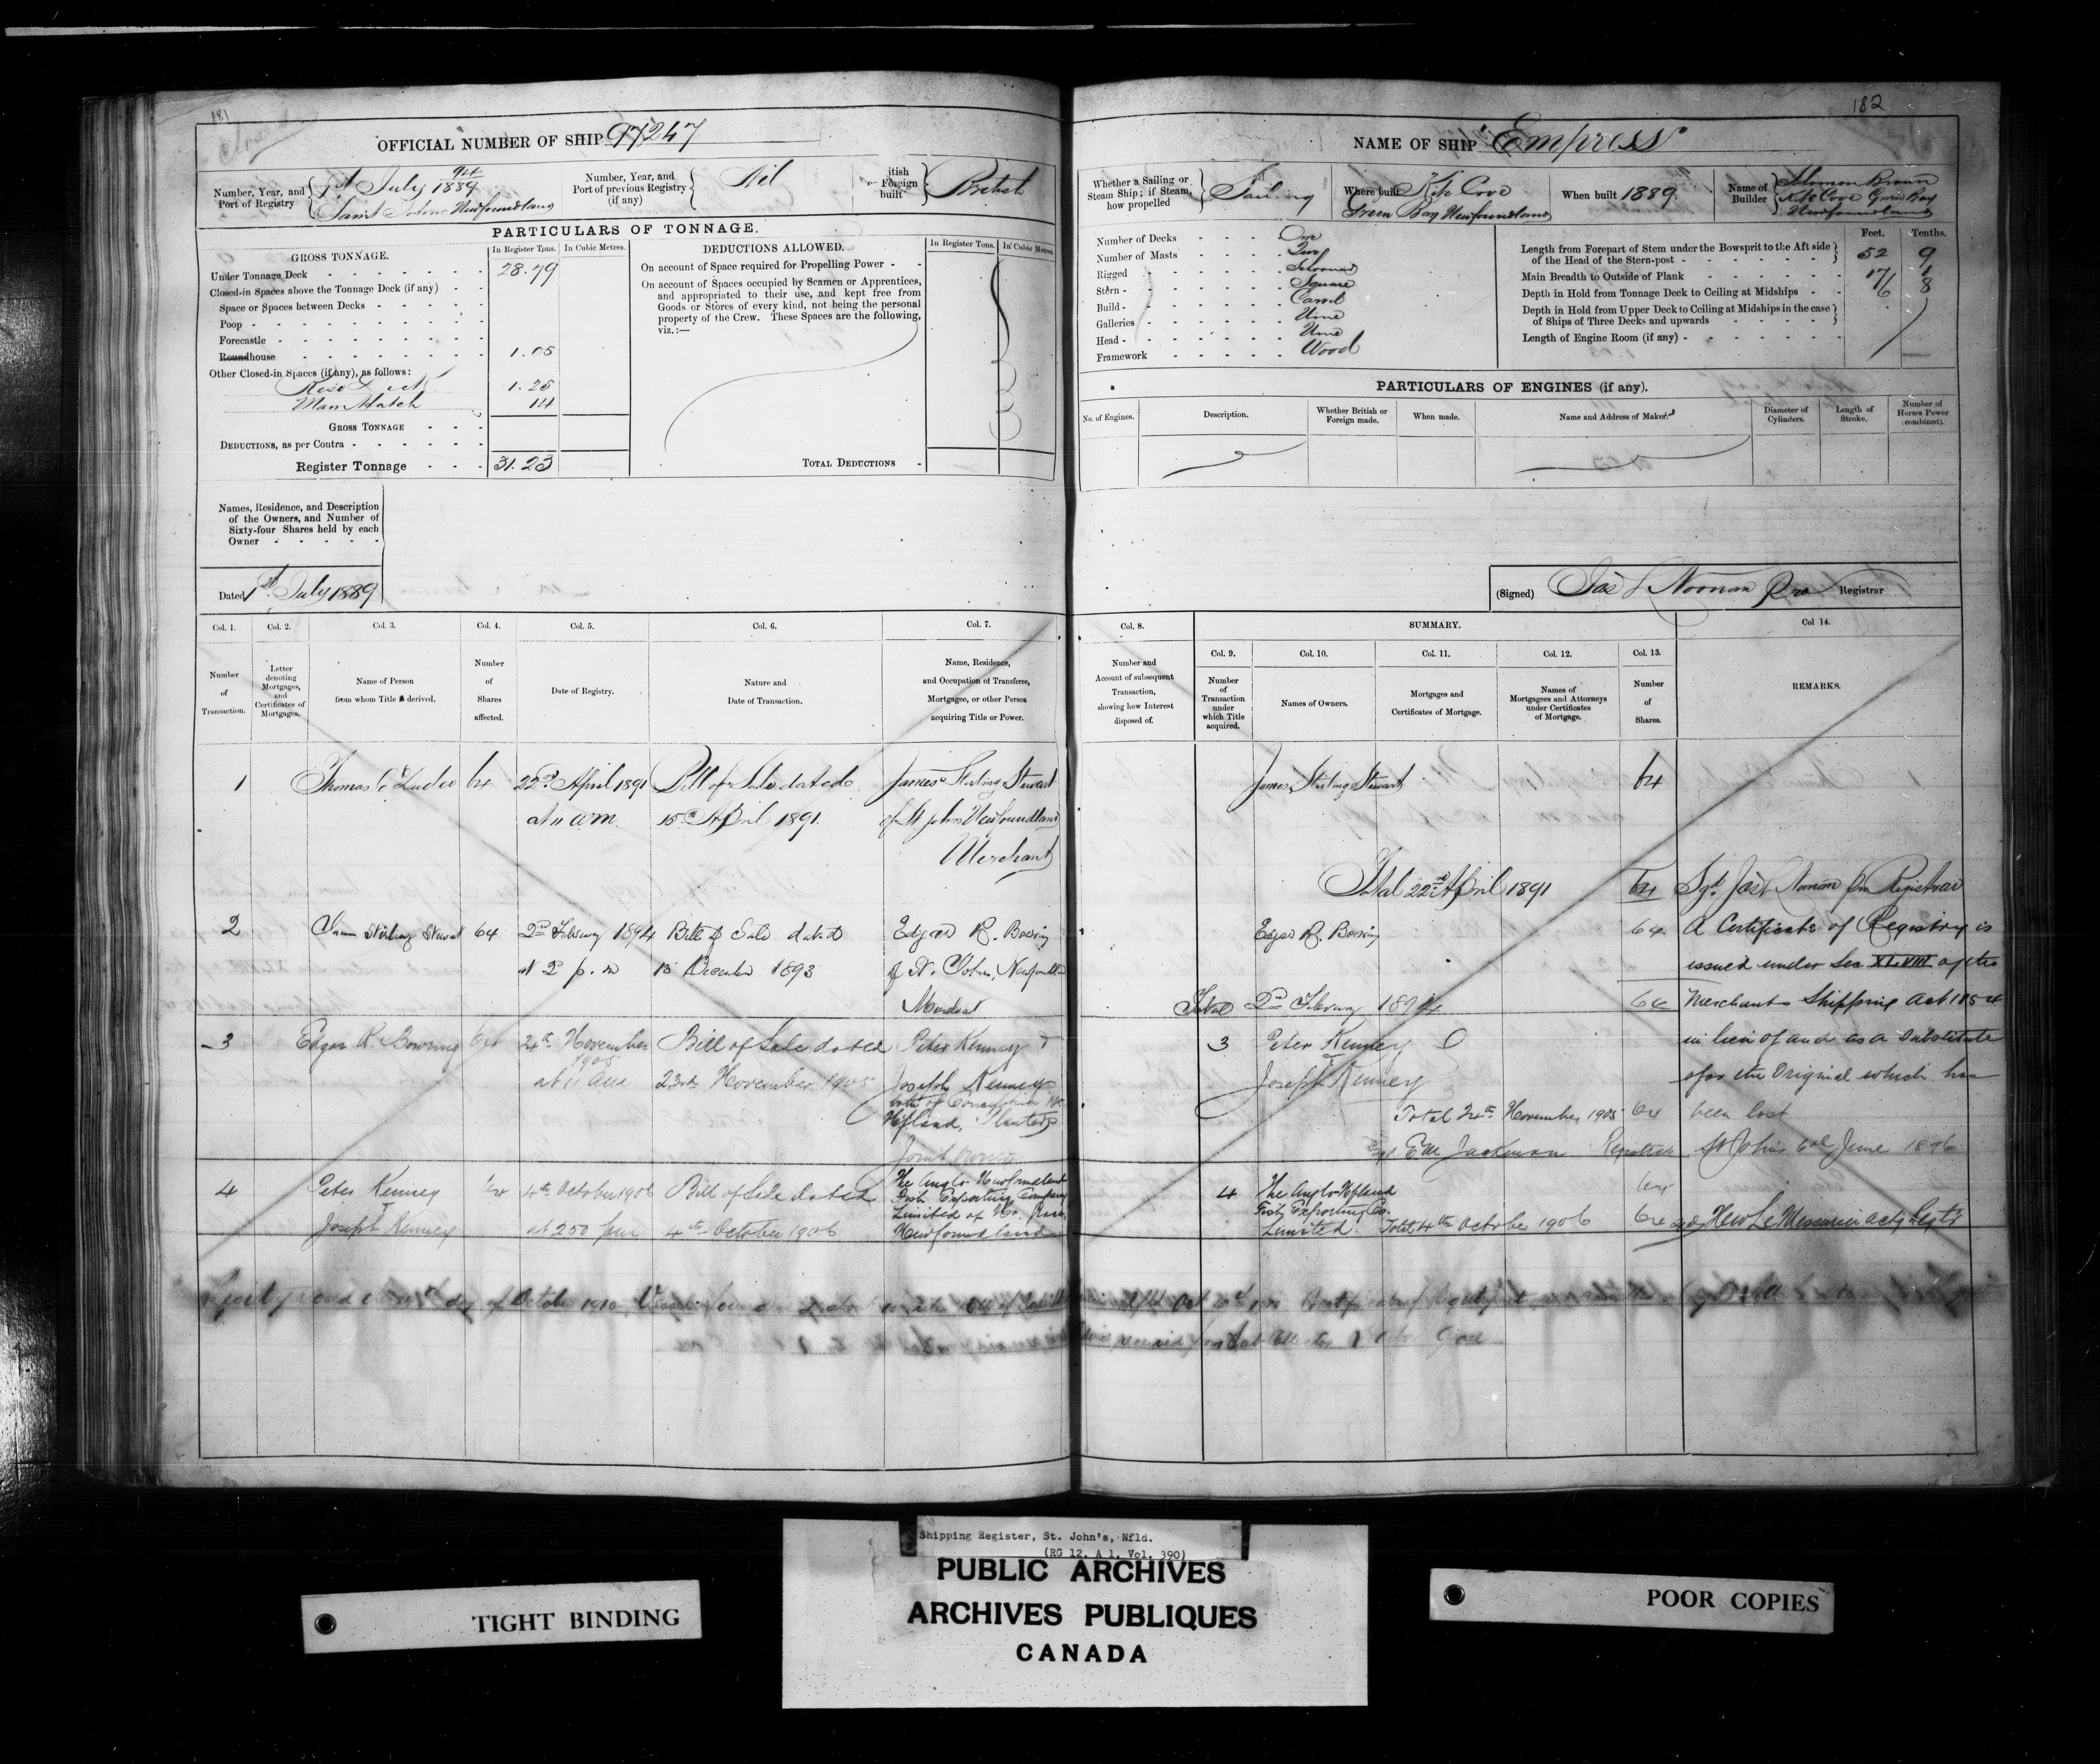 181
Closed
OFFICIAL NUMBER OF SHIP 97247
Number, Year, and Port of Registry
94
1st July 1889
Saint Johns Newfoundland
Number, Year, and Port of previous Registry (if any)
Nil
itish or Foreign built
British
PARTICULARS OF TONNAGE.
GROSS TONNAGE.
In Register Tons.
In Cubic Metres.
Under Tonnage Deck 28.79
Closed-in Spaces above the Tonnage Deck (if any)
Space or Spaces between Decks
Poop
Forecastle
Roundhouse 1.05
Other Closed-in Spaces (if any), as follows:
1.25
Main Hatch .14
GROSS TONNAGE
DEDUCTIONS, as per Contra
Register Tonnage 31.23
DEDUCTIONS ALLOWED.
In Register Tons.
In Cubic Metres.
On account of Space required for Propelling Power
On account of Spaces occupied by Seamen or Apprentices,
and appropriated to their use, and kept free from
Goods or Stores of every kind, not being the personal
property of the Crew. These Spaces are the following,
viz.:—
TOTAL DEDUCTIONS
Names, Residence, and Description
of the Owners, and Number of
Sixty-four Shares held by each
Owner
Dated 1st July 1889
Col. 1. Col. 2. Col. 3. Col. 4. Col. 5. Col. 6. Col. 7.
Number of Transaction.
Letter denoting Mortgages, and Certificates of Mortgages.
Name of Person from whom Title is derived.
Number of Shares affected.
Date of Registry.
Nature and Date of Transaction.
Name, Residence, and Occupation of Transferee, Mortgagee, or other Person acquiring Title or Power.
1 Thomas C Duder 64 22nd April 1891 Bill of Sale dated James Stirling Stewart
at 11 am 15th April 1891 of St John Newfoundland
Merchant
2 James Stirling Stewart 64 2nd February 1894 Bill of Sale dated Edgar R. Bowring
at 2 p.m 15 December 1893 of St. Johns, Newfoundland
Merchant
3 Edgar R. Bowring 64 24th November 1905 Bill of Sale dated Peter Kenney &
at 11 am 23rd November 1905 Joseph Kenney
both of
Nfland, Planters
Joint Owners
4 Peter Kenney 64 4th October 1906 Bill of Sale dated The Anglo Newfoundland
Joseph Kenney at 2.50 pm 4th October 1906 Fish Exporting Company
Limited of
Newfoundland
day of October 1910. Vessel
182
NAME OF SHIP Empress
Whether a Sailing or Steam Ship; if Steam, how propelled
Sailing
Where built
Kite Cove
Green Bay Newfoundland
When built 1889.
Name of Builder
Solomon Brown
Kite Cove Green Bay
Newfoundland
Number of Decks One
Number of Masts Two
Rigged Schooner
Stern Square
Build Carvel
Galleries None
Head None
Framework Wood
Feet. Tenths.
Length from Forepart of Stem under the Bowsprit to the Aft side of the Head of the Stern-post 52 9
Main Breadth to Outside of Plank 17 1
Depth in Hold from Tonnage Deck to Ceiling at Midships 6 8
Depth in Hold from Upper Deck to Ceiling at Midships in the case of Ships of Three Decks and upwards
Length of Engine Room (if any)
PARTICULARS OF ENGINES (if any).
No. of Engines.
Description.
Whether British or Foreign made.
When made.
Name and Address of Maker.
Diameter of Cylinders.
Length of Stroke.
Number of Horses Power (combined).
(Signed) Jas L Noonan Pro Registrar
Col. 8. SUMMARY. Col 14.
Col. 9. Col. 10. Col. 11. Col. 12. Col. 13.
Number and Account of subsequent Transaction, showing how Interest disposed of.
Number of Transaction under which Title acquired.
Names of Owners.
Mortgages and Certificates of Mortgage.
Names of Mortgagees and Attorneys under Certificates of Mortgage.
Number of Shares.
REMARKS.
James Stirling Stewart 64
Total 22nd April 1891 64 Sgd. Jas L Noonan Pro Registrar
Edgar R. Bowring 64 A Certificate of Registry is
issued under Sec XLVIII of the
Total 2nd February 1894 64 Merchants Shipping Act 1854
3 Peter Kenney in lieu of and as a substitute
Joseph Kenney of the Original which has
Total 24th November 1905 64 been lost
Sgd E M Jackman Registrar St Johns June 1896
4 The Anglo Nfland 64
Fish Exporting Co.
Limited. Total 4th October 1906 64 sgd H W LeMessurier actg Regtr
received from Sub Collector
Shipping Register, St. John's, Nfld.
(RG 12, A 1, Vol. 390)
PUBLIC ARCHIVES
ARCHIVES PUBLIQUES
CANADA
TIGHT BINDING
POOR COPIES